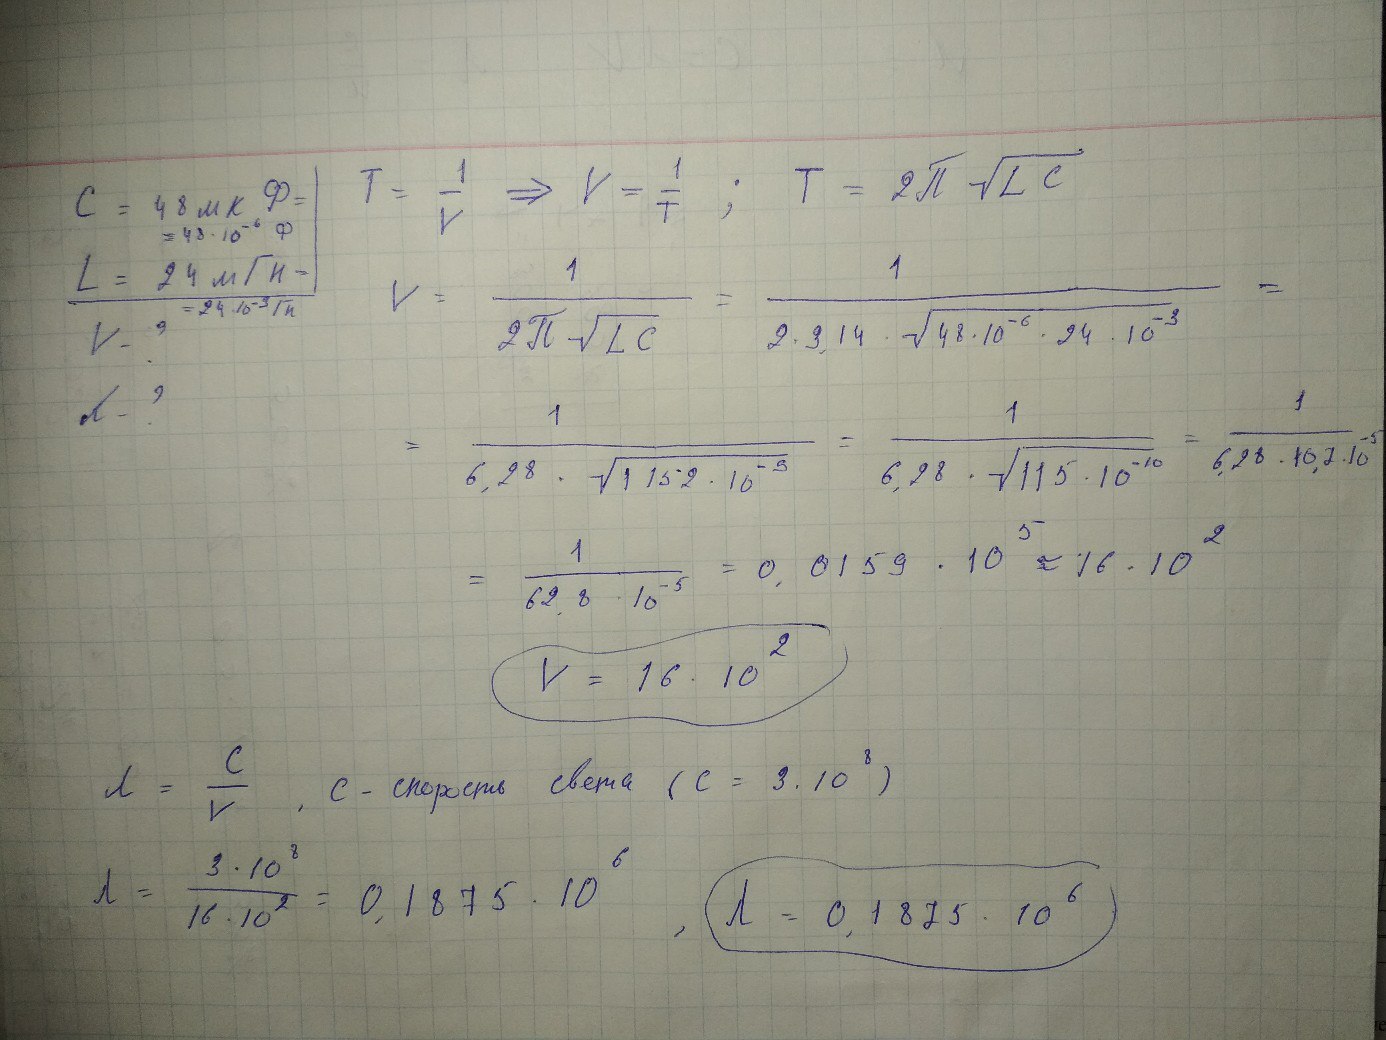 C = 48 мк Ф=
=48·10⁻⁶ Ф
L = 24 мГн=
=24·10⁻³Гн
V - ?
λ - ?
T = 1/V ⇒ V = 1/T ; T = 2П √LC
V = 1/(2П √LC) = 1/(2·3,14 · √48·10⁻⁶ · 24 · 10⁻³) =
= 1/(6,28 · √1152 · 10⁻⁹) = 1/(6,28 · √115 · 10⁻¹⁰) = 1/(6,28 · 10,7·10⁻⁵)
= 1/(62,8 · 10⁻⁵) = 0,0159 · 10⁵ ≈ 16 · 10²
V = 16 · 10²
λ = C/V , c - скорость света (c = 3·10⁸)
λ = 3·10⁸/16·10² = 0,1875 · 10⁶ , λ = 0,1875 · 10⁶